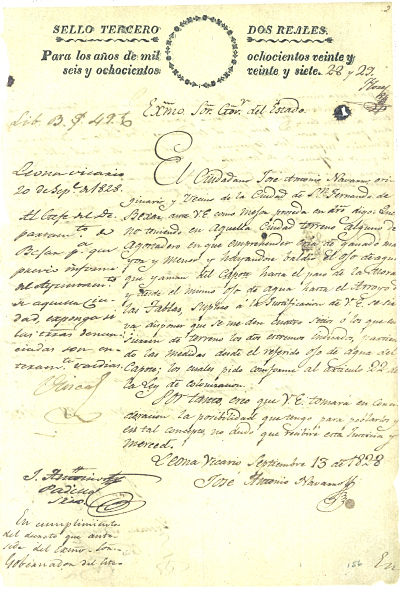 SELLO TERCERO
DOS REALES.
Para los años de mil
ochocientos veinte y
seis y ochocientos
veinte y siete. 28 y 29.
Exmo. Sor. Gov.r del Estado.
Lib. B.
1
El Ciudadano Jose Antonio Navarro ori-
ginario y Vecino de la Ciudad de Sn. Fernando de
Bexar, ante V.E. como mejor proceda en digo: Que
no teniendo en Aquella Ciudad terreno alguno de
Agostadero en que emprender cria de ganado ma-
yor y Menor y baldio el ojo de agua
que llaman del Capote hasta el paso de la
y desde el mismo ojo de agua hasta el Arroyo de
las Tablas, Suplico á la Justificacion de V.E. se sir-
va disponer que se me den Cuatro Sitios, ó los que tu-
biesen de terreno los dos estremos indicados,
de las medidas desde el referido ojo de agua del
Capote; los cuales pido conforme al articulo
la Ley de Colonizacion.
Por tanto, creo que V.E. tomará en Consi-
deracion la posibilidad que tengo para poblarlos y
en tal concepto, no dudo que recibiré esta
merced.
Leona Vicario Septiembre 13 de 1828
Jose Antonio Navarro
Leona Vicario
20 de Sepe. de 1828.
Al Gefe del De-
partamto. de
Bejar pa. que
previo informe
del Ayuntamto.
de aquella Ciu-
dad, exponga si
las tierras denun-
ciadas son en-
teramte. valdias.
J. Antonio
Padilla
Srio.
En cumplimiento
del decreto que ante-
cede del Exmo. Sor.
Gobernador del Esta-
156